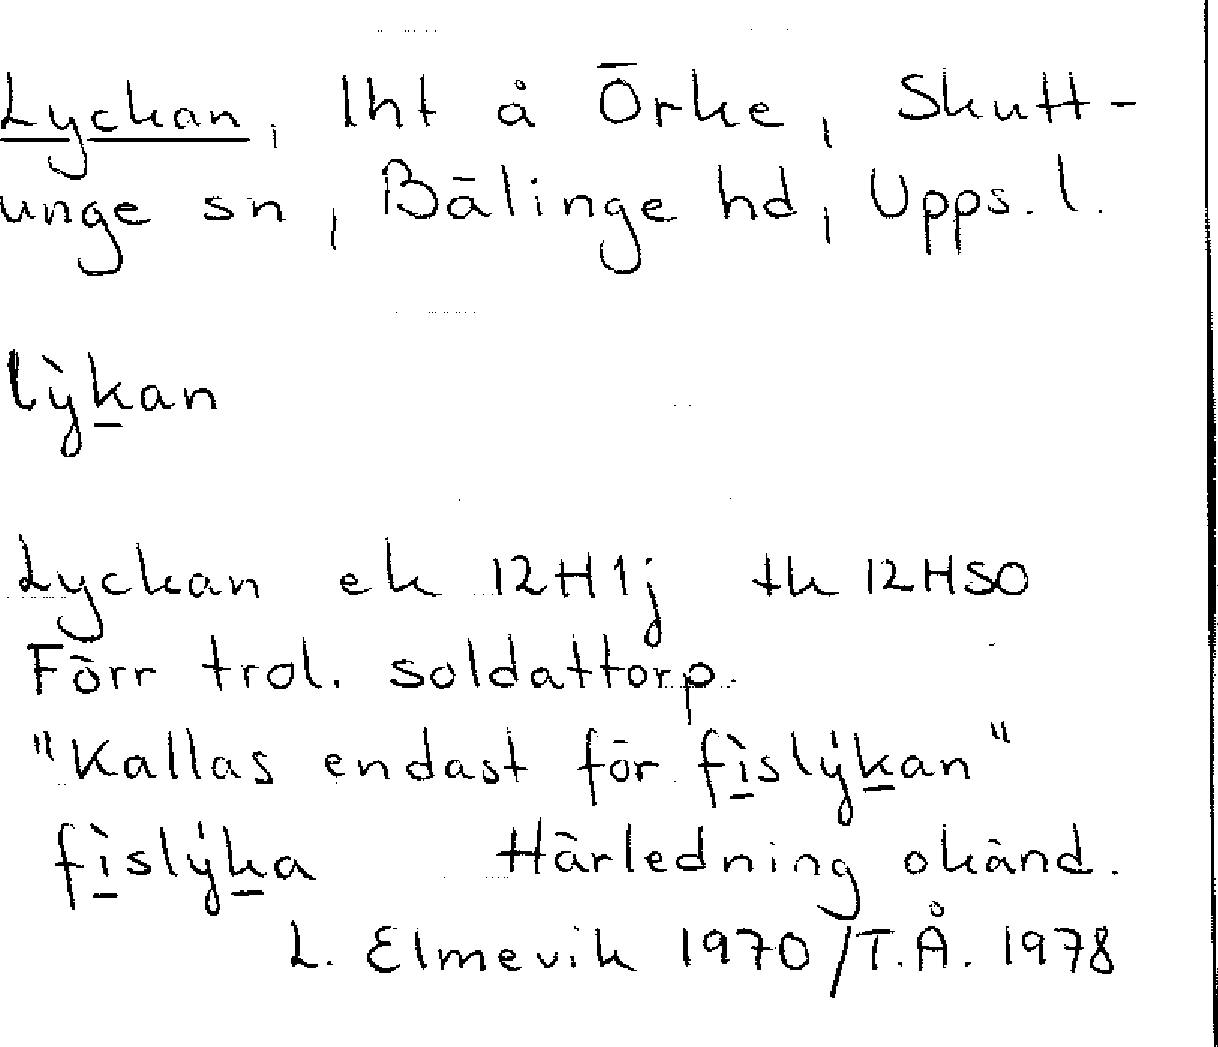 Lyckan, lht å Örke, Skutt-
unge sn, Bälinge hd, Upps. l.
lỳk̲an
Lyckan ek 12H1j tk 12HSO
Förr trol. soldattorp.
"Kallas endast för fì̲slýk̲an"
fì̲slýk̲a Härledning okänd.
L. Elmevik 1970/T.Å. 1978